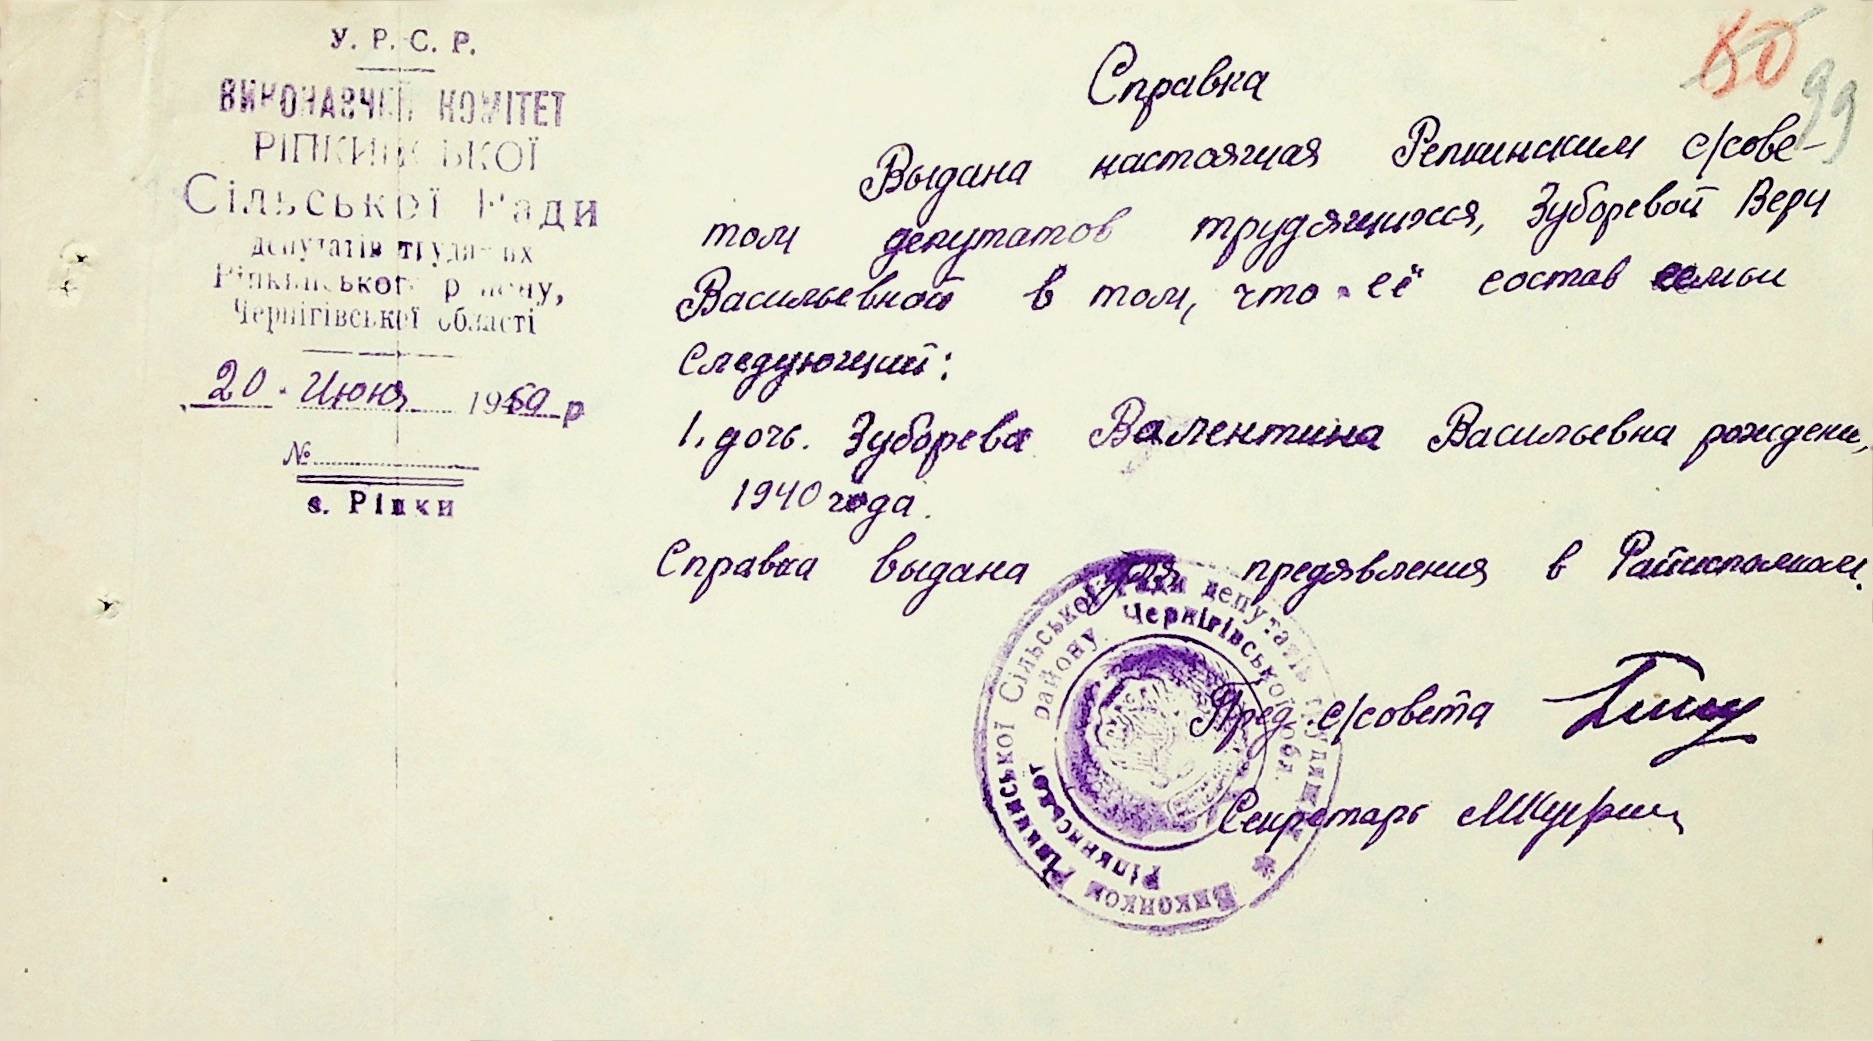 У. Р. С. Р.
ВИКОНАВЧИЙ КОМІТЕТ
РІПКИНСЬКОЇ
Сільської Ради
депутатів трудящих
Ріпкинського району,
Чернігівської області
20 Июня 1959 р
№
с. Ріпки
80
99
Справка
Выдана настоящая Репкинским с/сове-
том депутатов трудящихся, Зуборевой Веры
Васильевной в том, что её состав семьи
следующий:
1. дочь. Зуборева Валентина Васильевна рождени,
1940 года.
Справка выдана для предявления в Райисполком.
Пред. с/совета
Секретарь
Виконком Ріпкинської Сільської Ради депутатів трудящих *
Ріпкинського району Чернігівської обл.